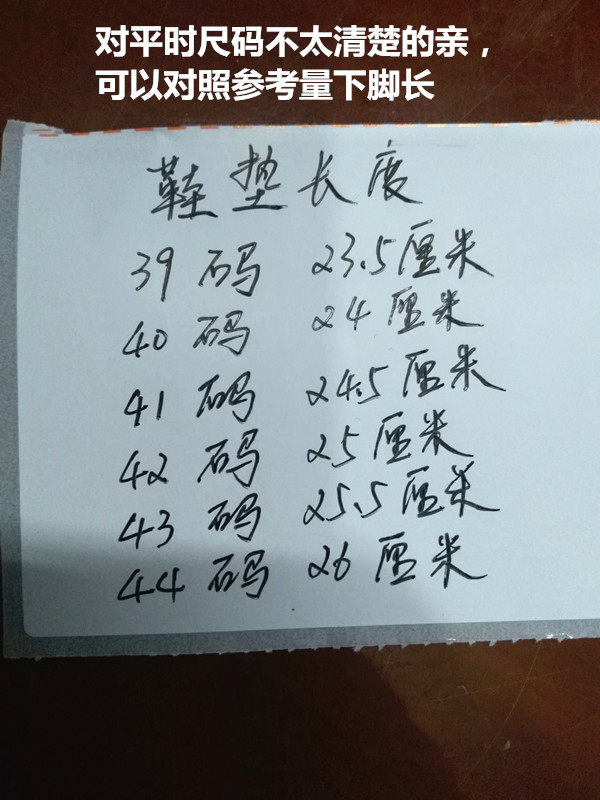 对平时尺码不太清楚的亲，
可以对照参考量下脚长
鞋垫长度
39码 23.5厘米
40码 24厘米
41码 24.5厘米
42码 25厘米
43码 25.5厘米
44码 26厘米